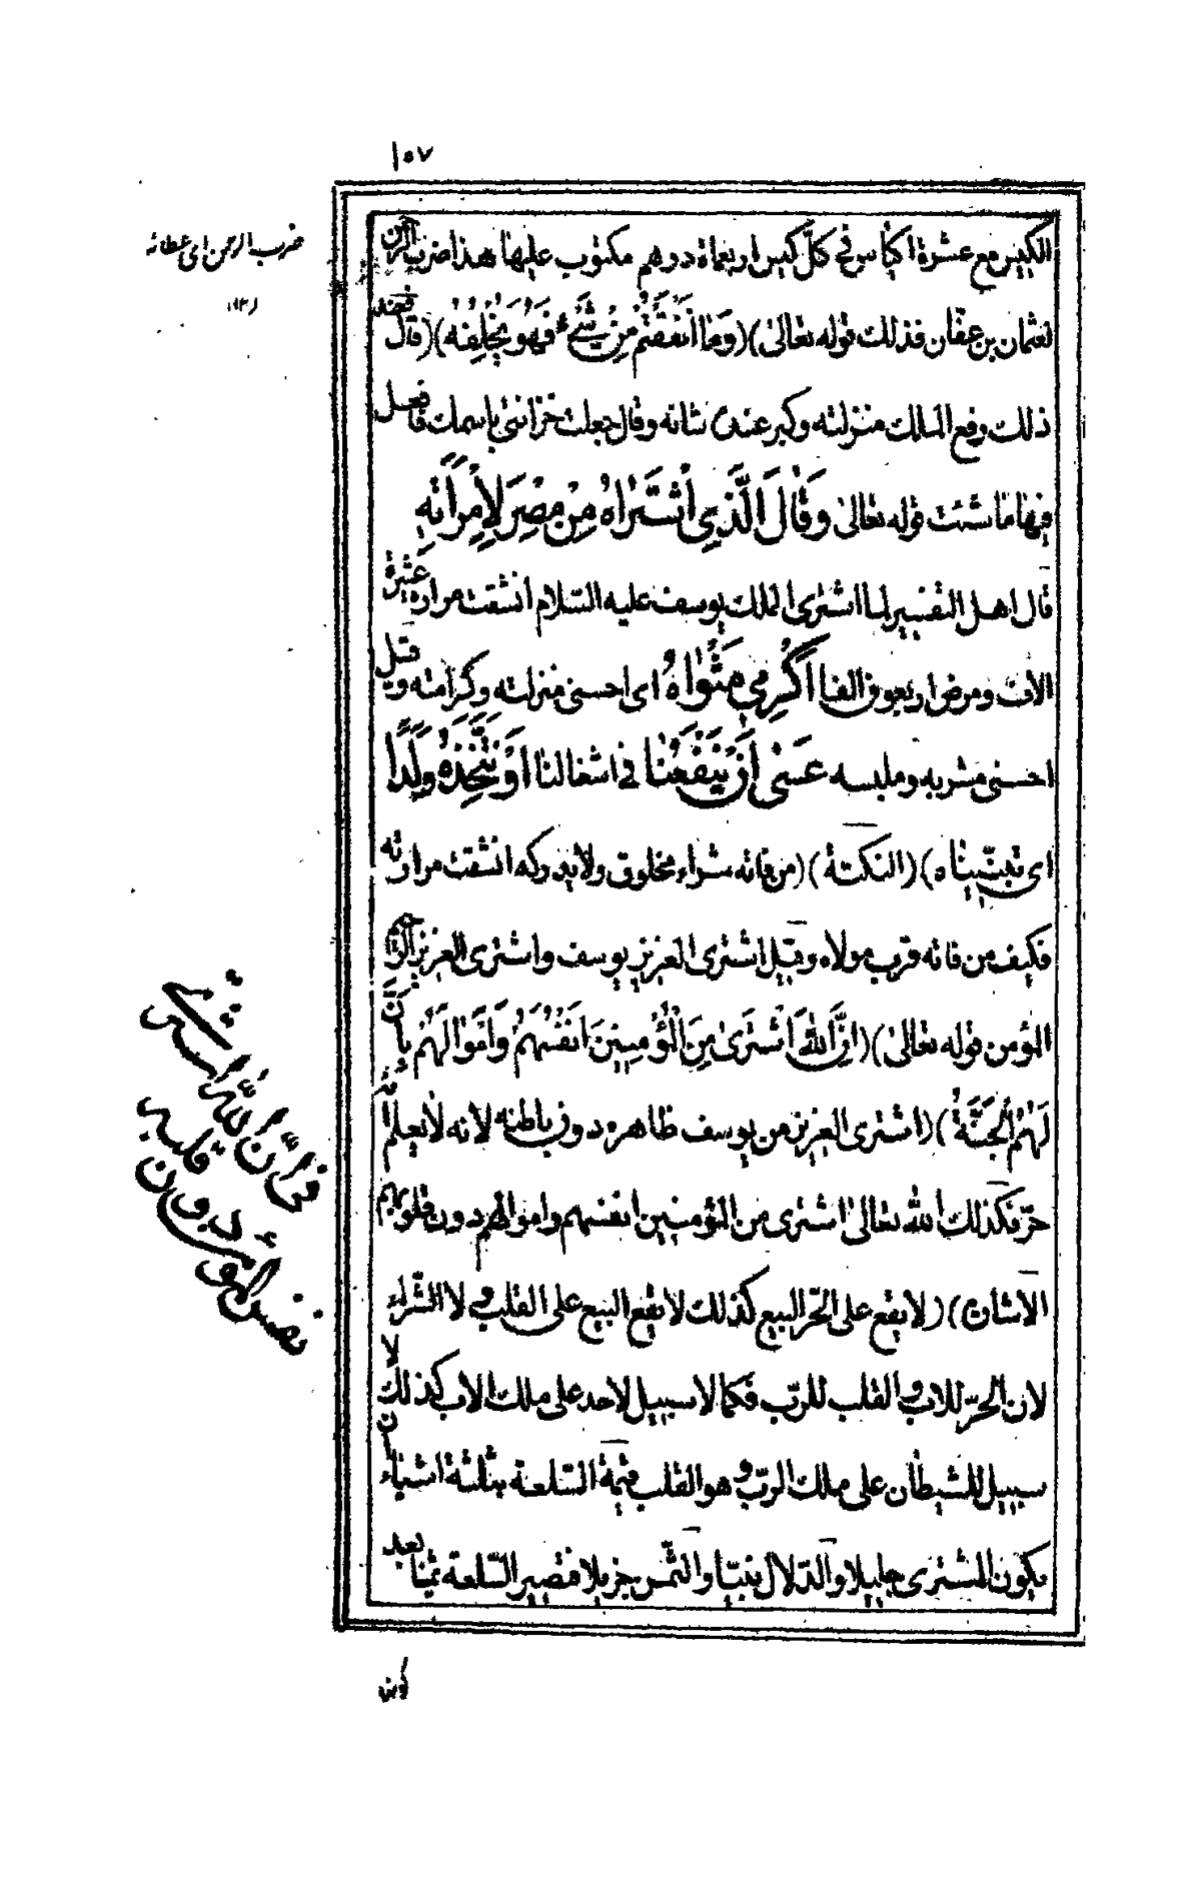 ١٥٧
الكيس مع عشرة اكياس فى كل كيس اربعماة درهم مكتوب عليها هذا ضرب الرحمن
لعثمان بن عفّان فذلك قوله تعالى) (وَمَا اَنْفَقْتُمْ مِنْ شَىْءٍ فَهُوَ يُخْلِفُهُ) (قال فعند
ذلك رفع الملك منزلته وكبر عنده شانه وقال جعلت خزائنى باسمك فافعل
فيها ما شئت قوله تعالى وَقَالَ الَّذِى اشْتَرَاهُ مِنْ مِصْرَ لِاِمْرَاَتِهِ
قال اهل التفسير لما اشترى الملك يوسف عليه السّلام انشقت مرارة عشرة
الاف ومرض اربعون الفا اَكْرِمِى مَثْوَاهُ اى احسنى منزلته وكرامته وقيل
احسنى مشربه وملبسه عَسٰى اَنْ يَنْفَعَنَا فى اشغالنا اَوْ نَتَّخِذَهُ وَلَدًا
اى تبنّيناه) (النكتة) (من فاته شراء مخلوق ولا يدركه انشقت مرارته
فكيف من فاته قرب مولاه وقيل اشترى العزيز يوسف واشترى العزيز الرّحيم
المؤمن قوله تعالى) (اِنَّ اللّٰهَ اشْتَرَىٰ مِنَ الْمُؤْمِنِينَ اَنْفُسَهُمْ وَاَمْوَالَهُمْ بِاَنَّ
لَهُمُ الْجَنَّةَ) (اشترى العزيز من يوسف ظاهره دون باطنه لانه لا يعلم انّه
حرّ فكذلك الله تعالى اشترى من المؤمنين انفسهم واموالهم دون قلوبهم
الاشارة) (لا يقع على الحرّ البيع كذلك لا يقع البيع على القلب ولا الشّراء
لان الحرّ للاب والقلب للربّ فكما لا سبيل لاحد على ملك الاب كذلك لا
سبيل للشيطان على ملك الربّ وهو القلب قيمة السّلعة بثلثة اشياء ان
يكون المشترى جليلا والدّلال نبيّا والثّمن جزيلا فتصير السّلعة ثمينا بعد
كون
ضرب الرحمن اى عطائه
من انّ الله اشترى
نفس المؤمن دون قلبه